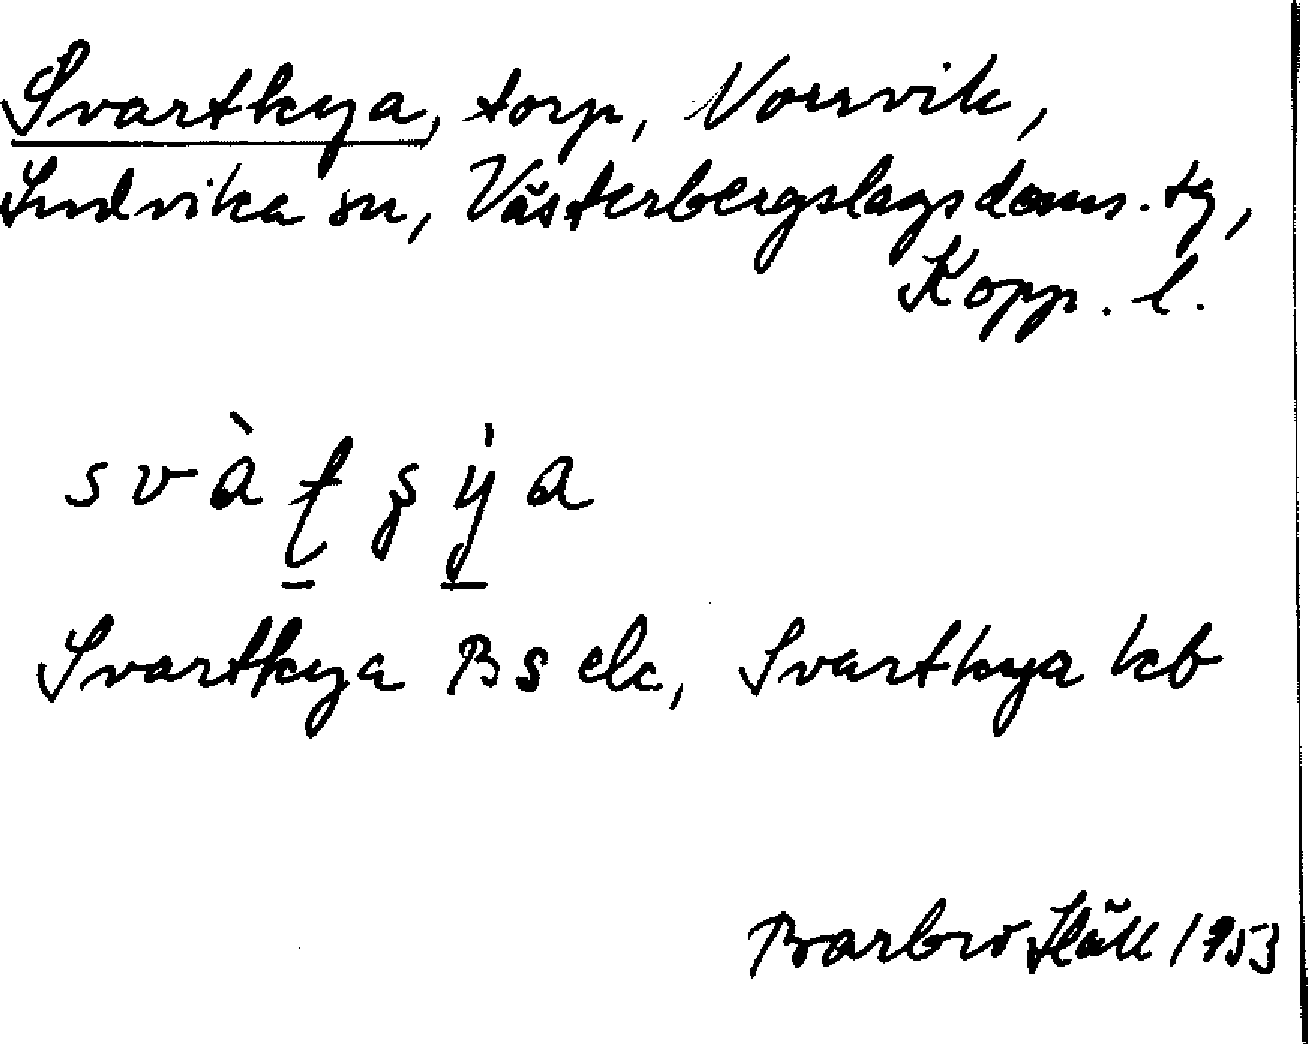 Svartkya, torp, Norrvik,
Ludvika sn, Västerbergslags doms. tg,
Kopp. l.
svàʈʂẏa
Svartkya BS elc, Svartkya kb
Barbro Ståll 1953